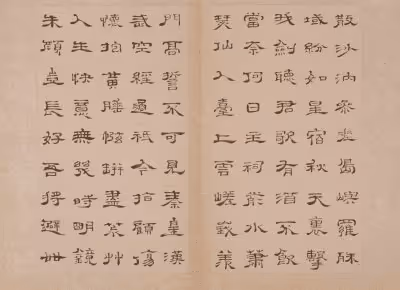 散沙汭參差島嶼羅
域紛如星宿秋天裏擊
我劍聽君歌有酒不飲
當奈何日主祠水蕭
琴仙人臺上雲嵯峩羨
門高誓不可見秦皇漢
武空經過祇今指顧傷
懷抱黃盡艸
人生快意無幾時明鏡
朱顏豈長好吾將避世